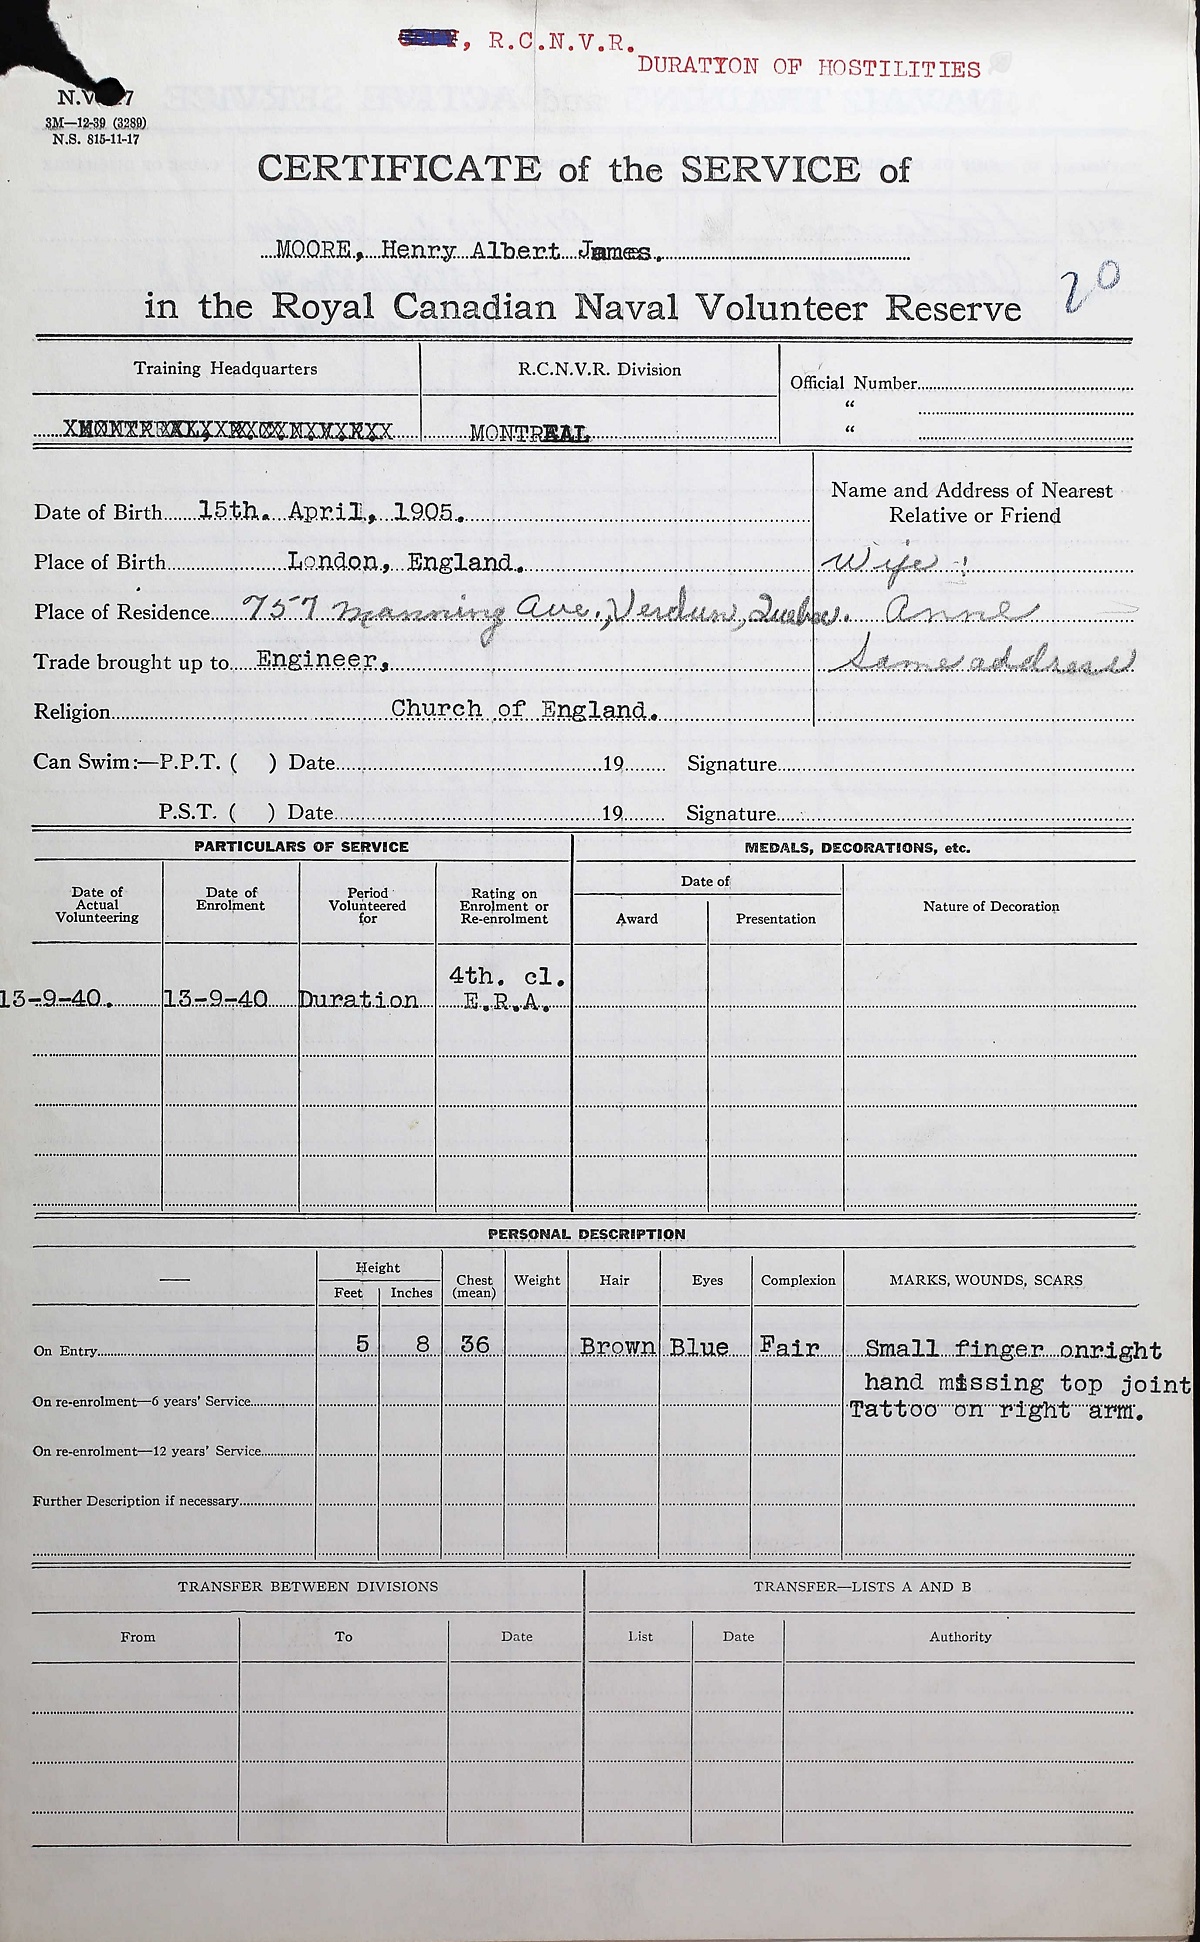 , R.C.N.V.R.
DURATION OF HOSTILITIES
N.V. 7
3M—12-39 (3289)
N.S. 815-11-17
CERTIFICATE of the SERVICE of
MOORE, Henry Albert James.
in the Royal Canadian Naval Volunteer Reserve
20
Training Headquarters
R.C.N.V.R. Division
Official Number
“
“
MONTREAL
Name and Address of Nearest
Relative or Friend
Date of Birth 15th. April, 1905.
Place of Birth London, England.
Wife :
Place of Residence 757 Manning Ave., Verdun, Quebec.
Anne
Trade brought up to Engineer.
Same address
Religion Church of England.
Can Swim:—P.P.T. ( ) Date 19 Signature
P.S.T. ( ) Date 19 Signature
PARTICULARS OF SERVICE
MEDALS, DECORATIONS, etc.
Date of
Actual
Volunteering
Date of
Enrolment
Period
Volunteered
for
Rating on
Enrolment or
Re-enrolment
Date of
Award
Presentation
Nature of Decoration
13-9-40. 13-9-40 Duration 4th. cl.
E.R.A.
PERSONAL DESCRIPTION
—
Height
Feet
Inches
Chest
(mean)
Weight
Hair
Eyes
Complexion
MARKS, WOUNDS, SCARS
On Entry 5 8 36 Brown Blue Fair Small finger onright
hand missing top joint
On re-enrolment—6 years' Service Tattoo on right arm.
On re-enrolment—12 years' Service
Further Description if necessary
TRANSFER BETWEEN DIVISIONS
TRANSFER—LISTS A AND B
From
To
Date
List
Date
Authority